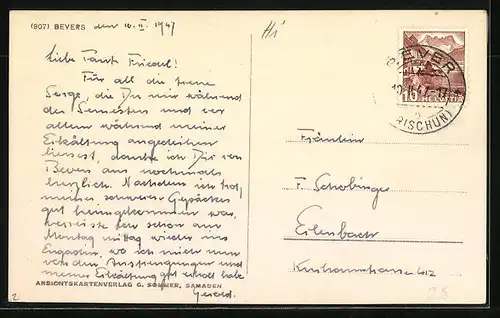 (907) BEVERS den 10. II 1947
Liebe Tante Friedel!
Für all die treue
Sorge, die Du mir während
des Semesters und vor
allem während meiner
Erkältung angedeihen
liessest, danke ich Dir von
Bevers aus nochmals
herzlich. Nachdem ich trotz
meines schweren Gepäckes
gut heimgekommen war,
verreiste ich schon am
Montag mittag wieder ins
Engadin, wo ich mich nun
von den Anstrengungen und
meiner Erkältung gut erholt habe
Gerold.
ANSICHTSKARTENVERLAG G. SOMMER, SAMADEN
Hi
BEVER
10. II. 47
HELVETIA
Fräulein
F. Schobinger
Erlenbach